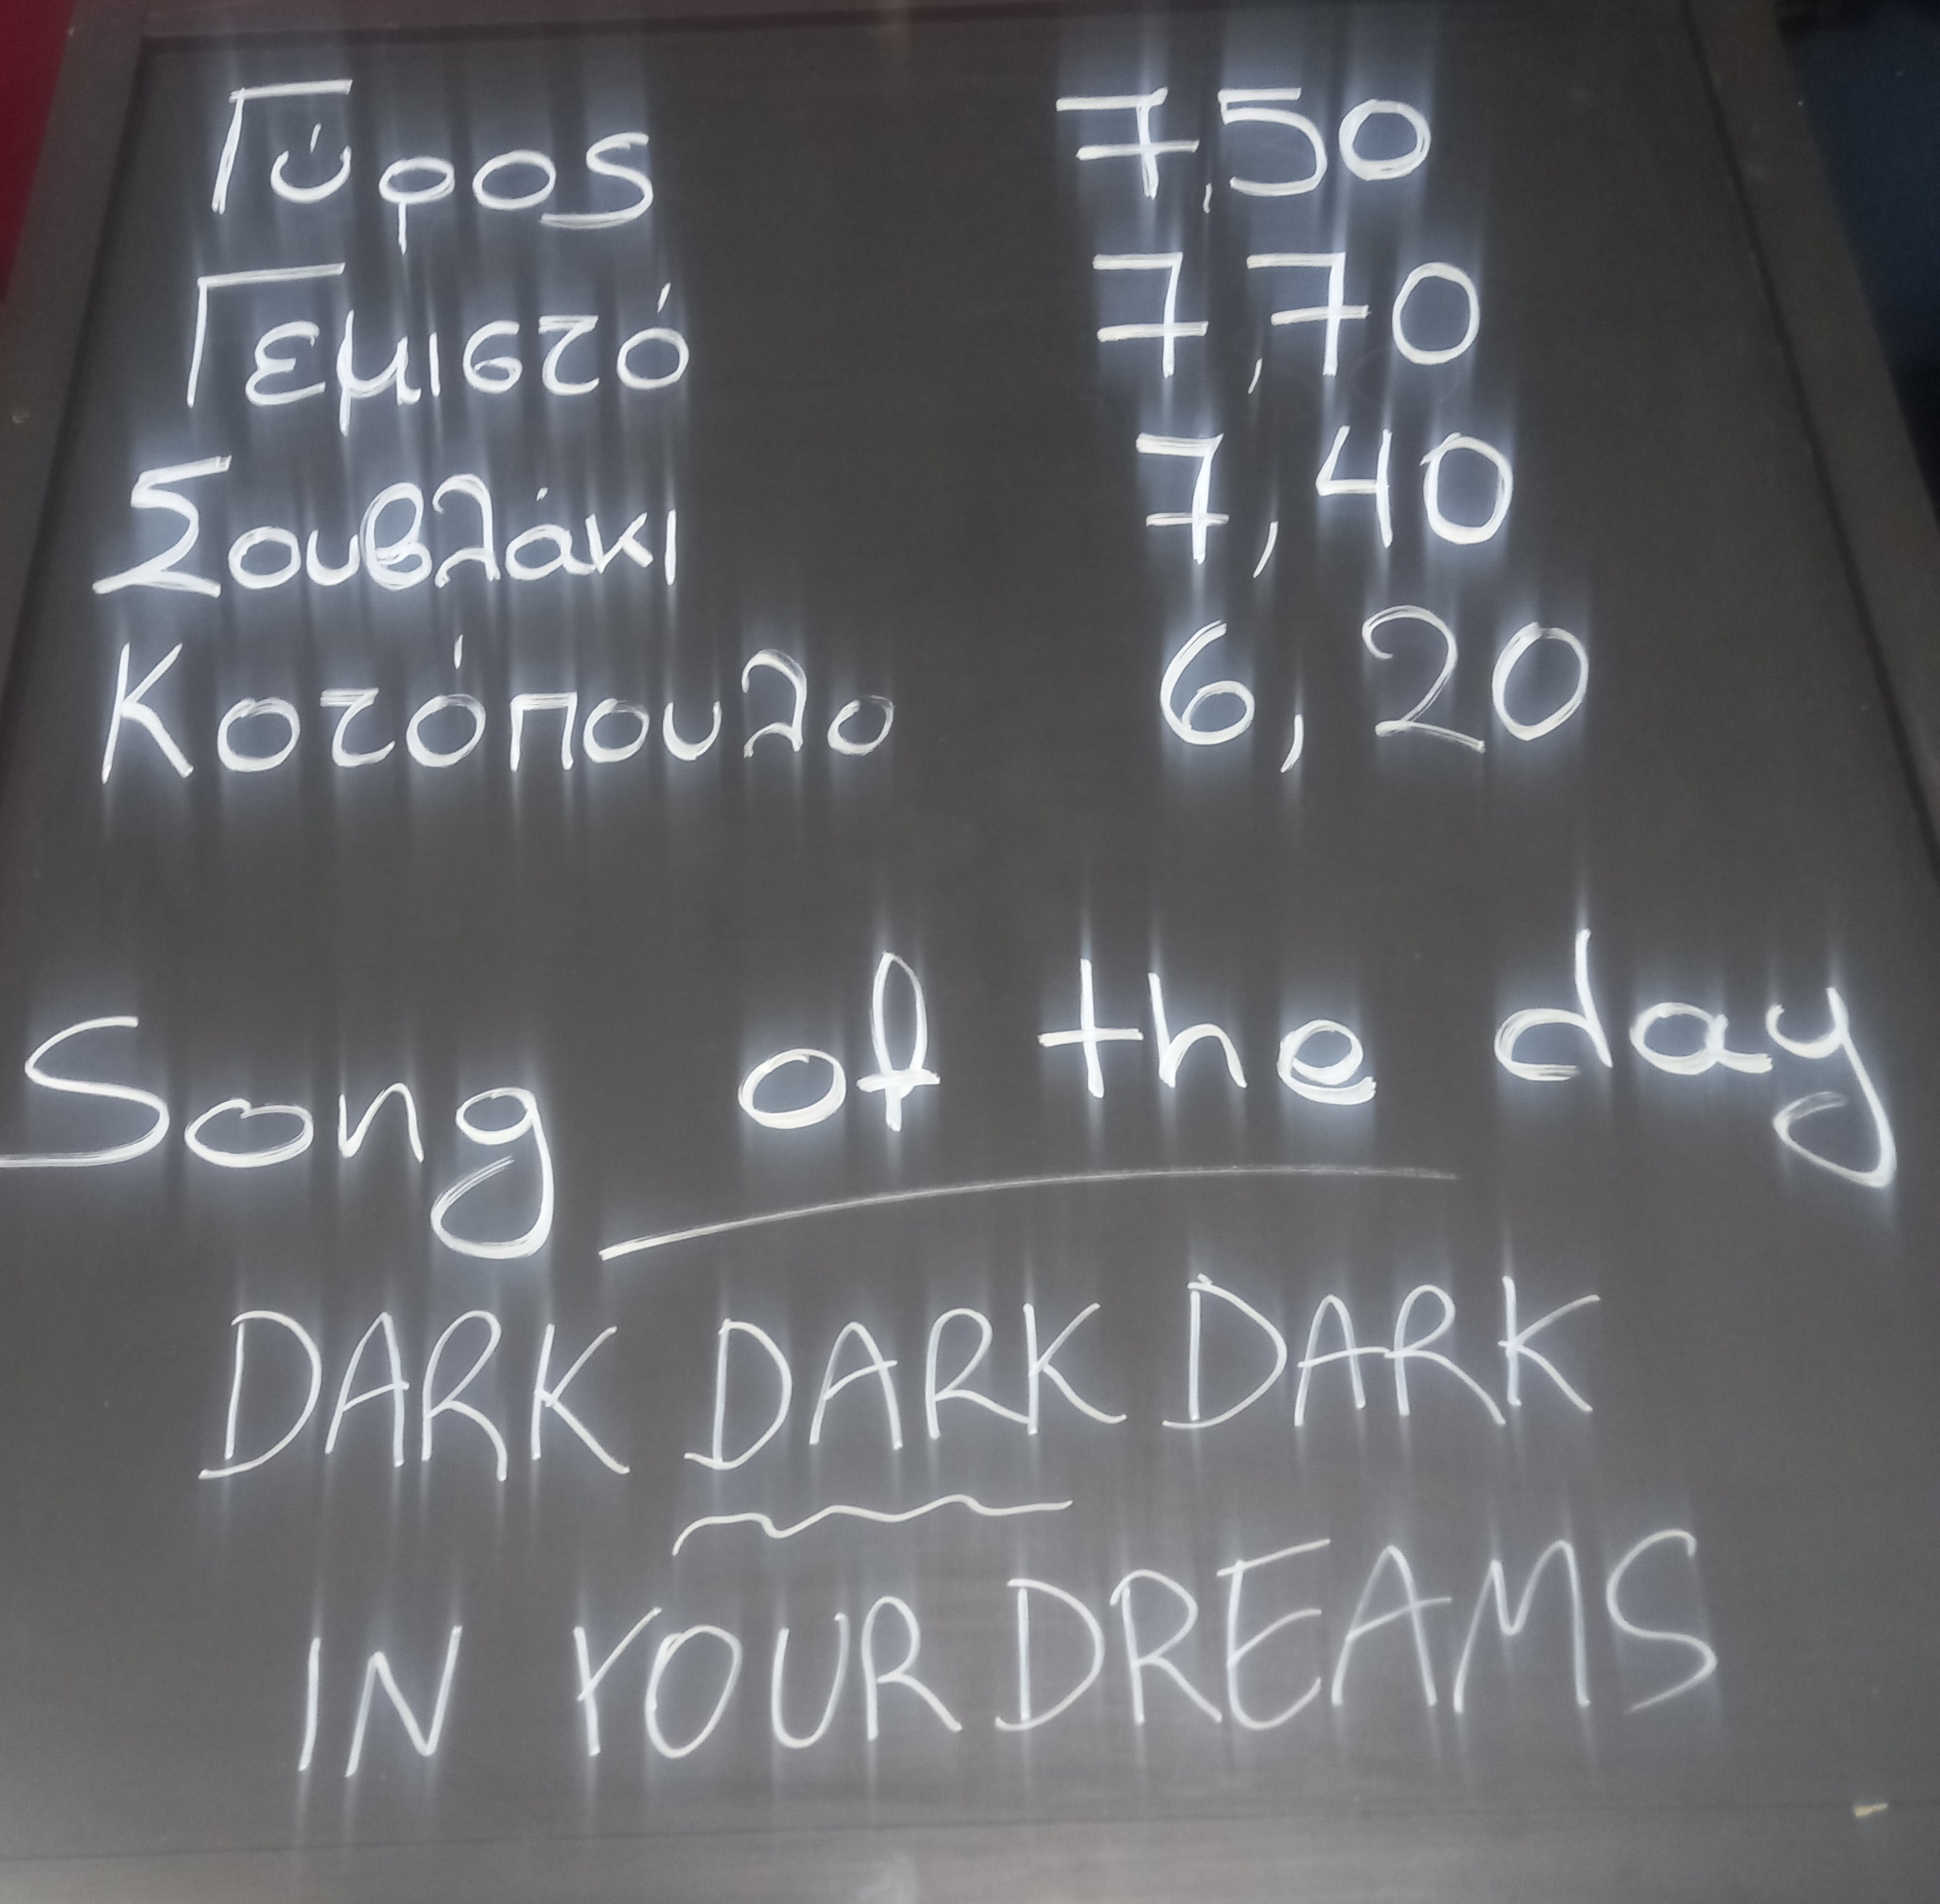 Γύρος 7,50
Γεμιστό 7,70
Σουβλάκι 7,40
Κοτόπουλο 6,20
Song of the day
DARK DARK DARK
IN YOUR DREAMS